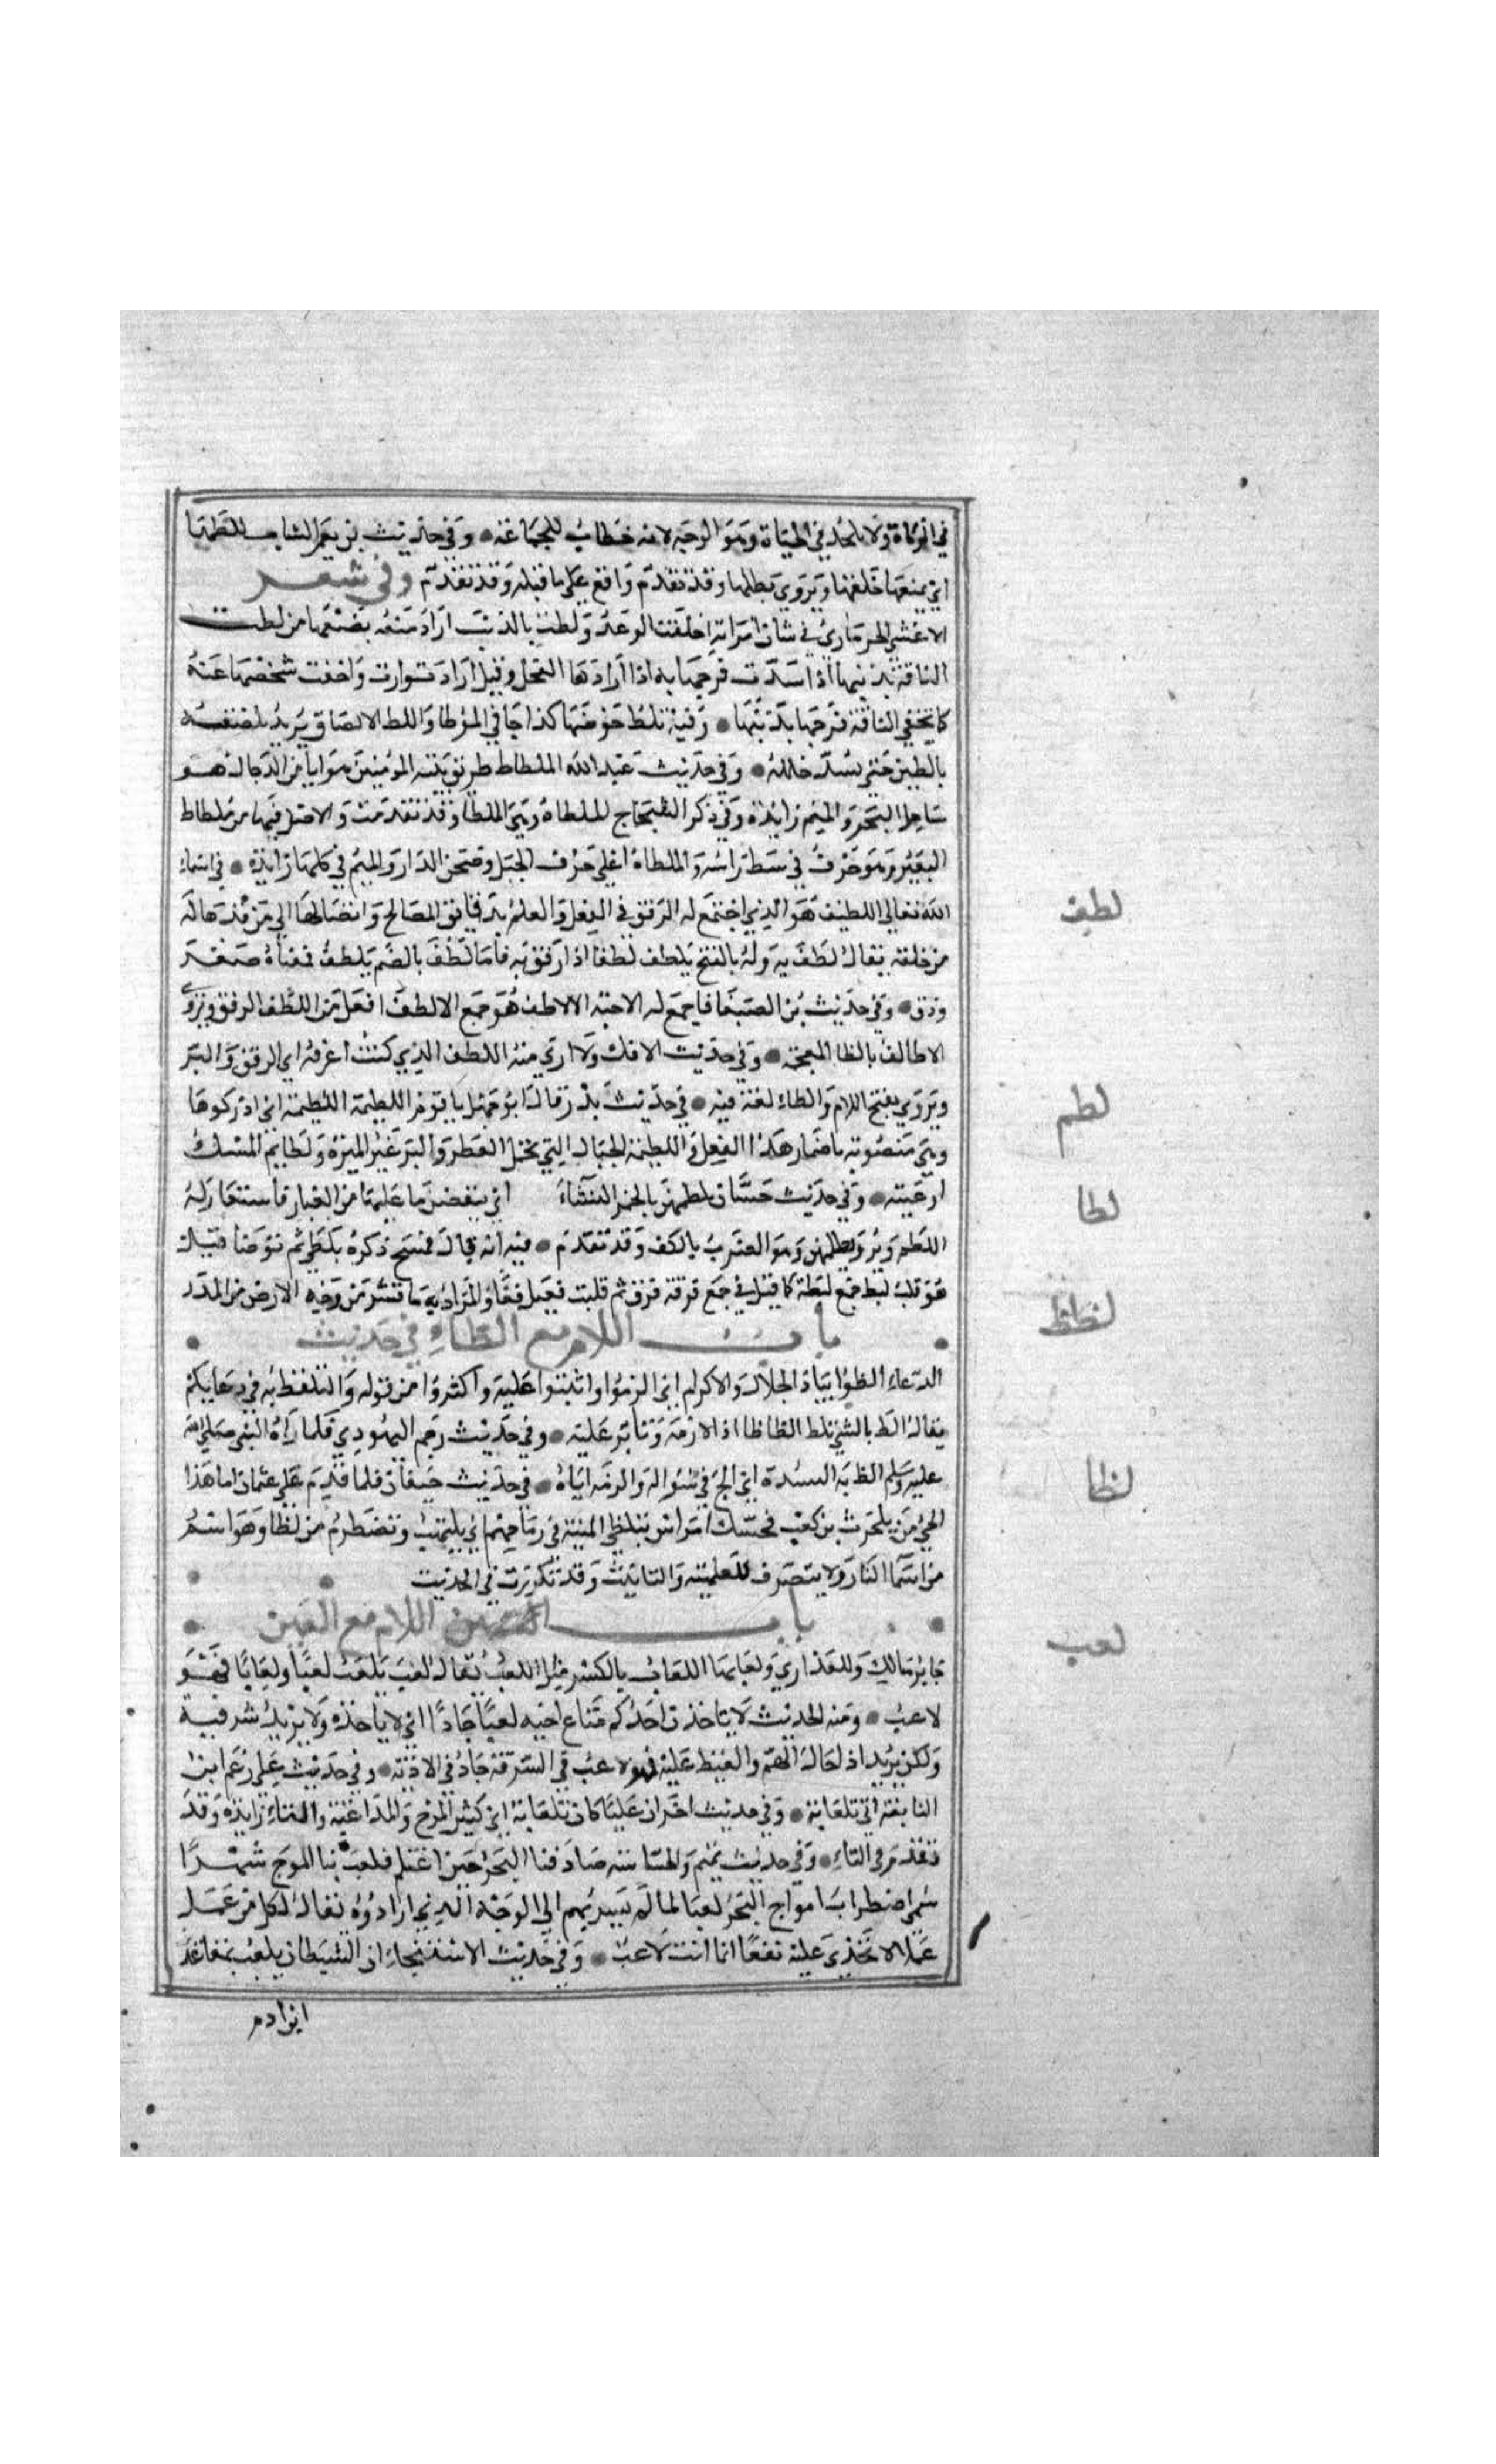 في الزكاة ولا يلحد في الحياة وهو الوجه لانه خطاب للجماعة وفي حديث بن يعمر انشات تلطها
اي يمنعها حقها ويروى تطلها وقد تقدم واقع على ما قبله وقد تقدم وفي شعر
الاعشى الحرمازي في شان امراته اخلفت الوعد ولطت بالذنب اراد منعه بضعها من لطت
الناقة بذنبها اذا سدت فرجها به اذا ارادها الفحل وقيل اراد توارت واخفت شخصها عنه
كما تخفي الناقة فرجها بذنبها وفيه تلط حوضها كذا جا في الموطا واللط الالصاق يريد تلصقه
بالطين حتى يسد خلله وفي حديث عبد الله الملطاط طريق بقية المومنين هرابا من الدجال هو
ساحل البحر والميم زايدة وفي ذكر الشجاج الملطاة وهي الملطا وقد تقدمت والاصل فيها من ملطاط
البعير وهو حرف في وسط راسه والملطاة اعلى حرف الجبل وصحن الدار والميم في كلها زايدة في اسماء
الله تعالى اللطيف هو الذي اجتمع له الرفق في الفعل والعلم بدقايق المصالح وايصالها الى من قدرها له
من خلقه يقال لطف به وله بالفتح يلطف لطفا اذا رفق به فاما لطف بالضم يلطف فمعناه صغر
ودق وفي حديث بن الصبغا فاجمع له الاحبة الالاطف هو جمع الالطف افعل من اللطف الرفق ويروى
الاظالف بالظا المعجمة وفي حديث الافك ولا ارى منه اللطف الذي كنت اعرفه اي الرفق والبر
ويروى بفتح اللام والطاء لغة فيه في حديث بدر قال ابو جهل يا قوم اللطيمة اللطيمة اي ادركوها
وهي منصوبة باضمار هذا الفعل واللطيمة الجمال التي تحمل العطر والبز غير الميرة ولطايم المسك
اوعيته وفي حديث حسان يلطمهن بالخمر النساء اي ينفضن ما عليها من الغبار فاستعار له
اللطم ويروى يطلمهن وهو الضرب بالكف وقد تقدم فيه انه بال فمسح ذكره بلطى ثم توضا قيل
هو قلب ليط جمع ليطة كما قيل في جمع فوقة فوق ثم قلبت فقيل فقا والمراد به ما قشر من وجه الارض من المدر
باب اللام مع الظاء في حديث
الدعاء الظوا بياذا الجلال والاكرام اي الزموا واثبتوا عليه واكثروا من قوله والتلفظ به في دعايكم
يقال الظ بالشي يلظ الظاظا اذا لازمه وثابر عليه وفي حديث رجم اليهودي فلما راه النبي صلى الله
عليه وسلم الظ به النشدة اي الح في سواله والزمه اياه في حديث خيفان لما قدم على عثمان اما هذا
الحي من بلحرث بن كعب فحسك امراس تتلظى المنية في رماحهم اي تلتهب وتضطرم من لظا وهو اسم
من اسما النار ولا ينصرف للعلمية والتانيث وقد تكررت في الحديث
باب اللام مع العين
جابر مالك وللعذارى ولعابها اللعاب بالكسر مثل اللعب يقال لعب يلعب لعبا ولعابا فهو
لاعب ومنه الحديث لا ياخذن احدكم متاع اخيه لعبا جادا اي لا ياخذه ولا يريد سرقته
ولكن يريد ادخال الهم والغيظ عليه فهو لاعب في السرقة جاد في الاذية وفي حديث علي زعم ابن
النابغة اني تلعابة وفي حديث اخر ان عليا كان تلعابة اي كثير المزح والمداعبة والتاء زايدة وقد
تقدم في التاء وفي حديث تميم والجساسة صادفنا البحر حين اغتلم فلعب بنا الموج شهرا
سمى اضطراب امواج البحر لعبا لما لم يسر بهم الى الوجه الذي ارادوه يقال لكل من عمل
عملا لا يجدي عليه نفعا انما انت لاعب وفي حديث الاستنجاء ان الشيطان يلعب بمقاعد
ابن ادم
لطف
لطم
لطا
لظظ
لظا
لعب